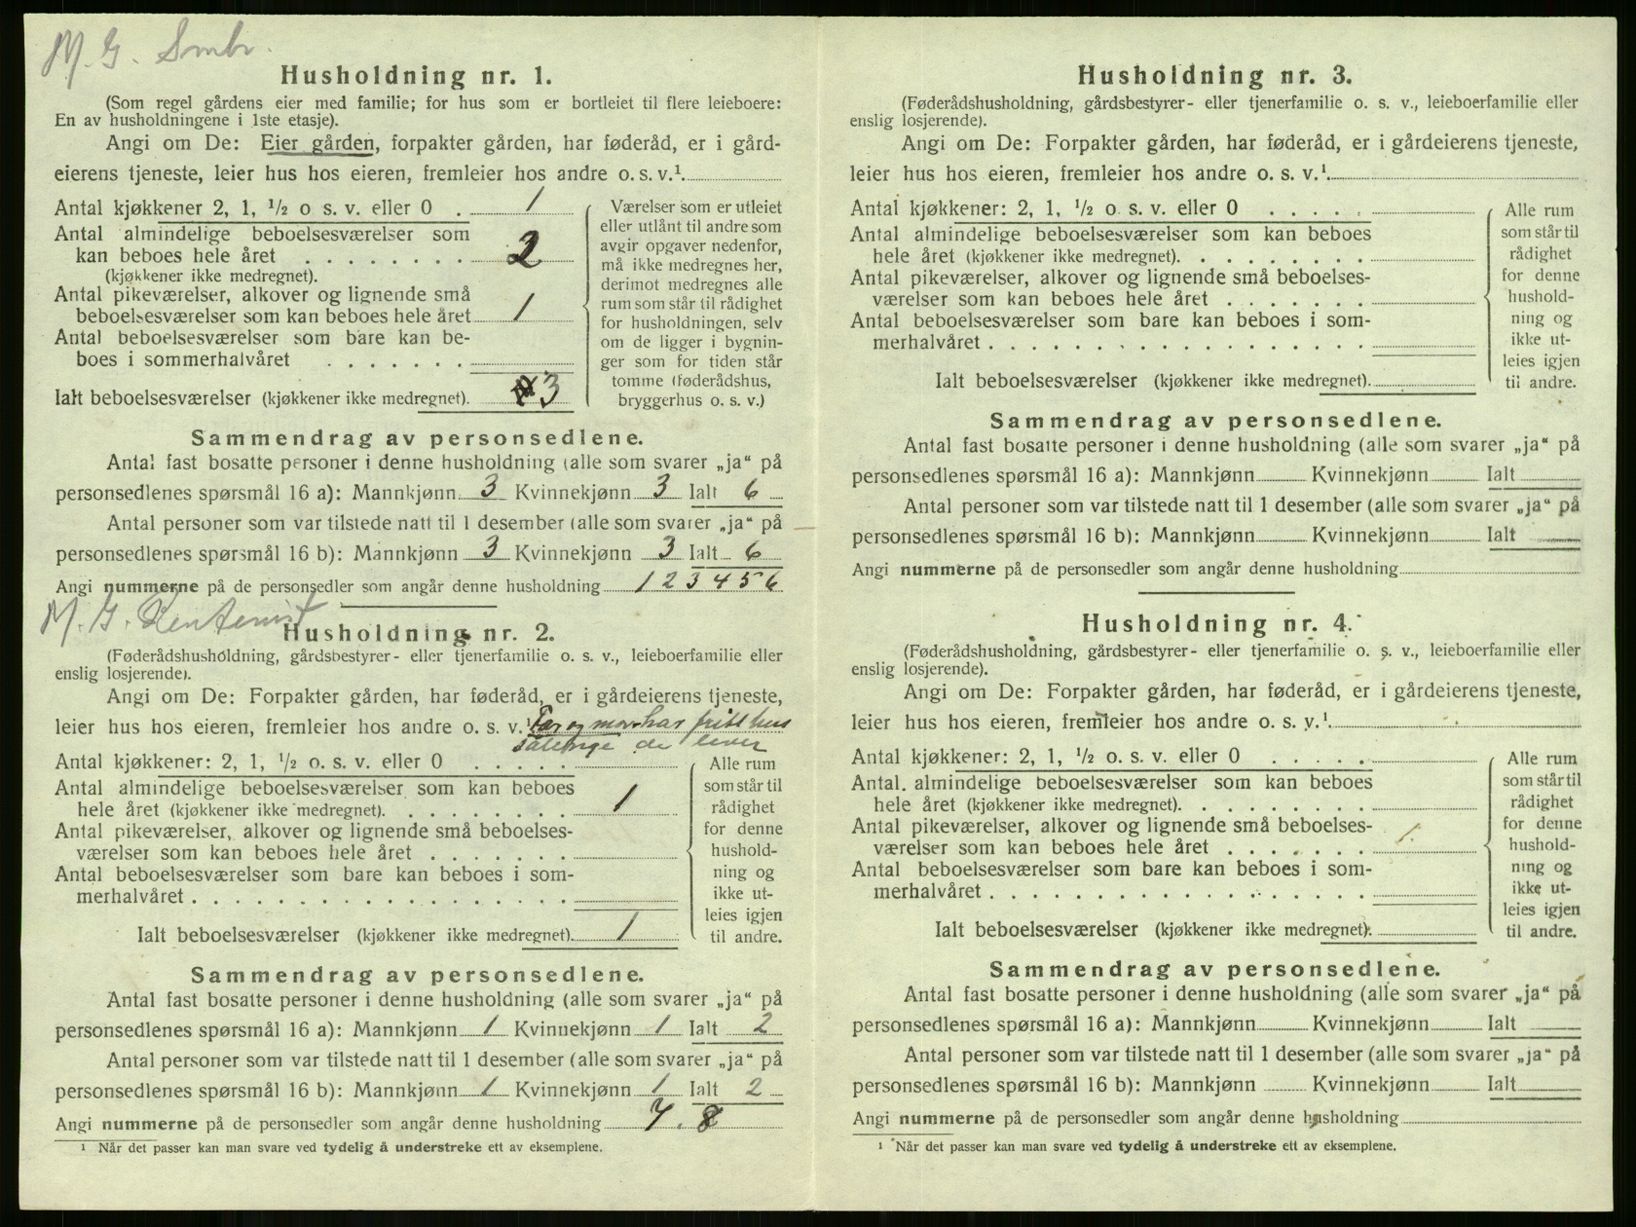 M. G. Smbr.
Husholdning nr. 1.
(Som regel gårdens eier med familie; for hus som er bortleiet til flere leieboere:
En av husholdningene i 1ste etasje).
Angi om De: Eier gården, forpakter gården, har føderåd, er i gård-
eierens tjeneste, leier hus hos eieren, fremleier hos andre o. s. v.¹.
Antal kjøkkener 2, 1, ½ o s. v. eller 0 . 1
Antal almindelige beboelsesværelser som
kan beboes hele året . . . . . . . . 2
(kjøkkener ikke medregnet).
Antal pikeværelser, alkover og lignende små
beboelsesværelser som kan beboes hele året 1
Antal beboelsesværelser som bare kan be-
boes i sommerhalvåret . . . . . .
Ialt beboelsesværelser (kjøkkener ikke medregnet). 3
Værelser som er utleiet
eller utlånt til andre som
avgir opgaver nedenfor,
må ikke medregnes her,
derimot medregnes alle
rum som står til rådighet
for husholdningen, selv
om de ligger i bygnin-
ger som for tiden står
tomme (føderådshus,
bryggerhus o. s. v.)
Sammendrag av personsedlene.
Antal fast bosatte personer i denne husholdning (alle som svarer „ja“ på
personsedlenes spørsmål 16 a): Mannkjønn 3 Kvinnekjønn 3 Ialt 6
Antal personer som var tilstede natt til 1 desember (alle som svarer „ja“ på
personsedlenes spørsmål 16 b): Mannkjønn 3 Kvinnekjønn 3 Ialt 6
Angi nummerne på de personsedler som angår denne husholdning 1 2 3 4 5 6
M. G.
Husholdning nr. 2.
(Føderådshusholdning, gårdsbestyrer- eller tjenerfamilie o. s. v., leieboerfamilie eller
enslig losjerende).
Angi om De: Forpakter gården, har føderåd, er i gårdeierens tjeneste,
leier hus hos eieren, fremleier hos andre o. s. v.¹ Far og mor har fritt hus
sålenge de lever
Antal kjøkkener: 2, 1, ½ o. s. v. eller 0 . . . . .
Antal almindelige beboelsesværelser som kan beboes
hele året (kjøkkener ikke medregnet). . . . . . . . 1
Antal pikeværelser, alkover og lignende små beboelses-
værelser som kan beboes hele året . . . . . . .
Antal beboelsesværelser som bare kan beboes i som-
merhalvåret . . . . . . . . . . . . . . . . . .
Ialt beboelsesværelser (kjøkkener ikke medregnet). 1
Alle rum
som står til
rådighet
for denne
hushold-
ning og
ikke ut-
leies igjen
til andre.
Sammendrag av personsedlene.
Antal fast bosatte personer i denne husholdning (alle som svarer „ja“ på
personsedlenes spørsmål 16 a): Mannkjønn 1 Kvinnekjønn 1 Ialt 2
Antal personer som var tilstede natt til 1 desember (alle som svarer „ja“ på
personsedlenes spørsmål 16 b): Mannkjønn 1 Kvinnekjønn 1 Ialt 2
Angi nummerne på de personsedler som angår denne husholdning 7. 8
¹ Når det passer kan man svare ved tydelig å understreke ett av eksemplene.
Husholdning nr. 3.
(Føderådshusholdning, gårdsbestyrer- eller tjenerfamilie o. s. v., leieboerfamilie eller
enslig losjerende).
Angi om De: Forpakter gården, har føderåd, er i gårdeierens tjeneste,
leier hus hos eieren, fremleier hos andre o. s. v.¹.
Antal kjøkkener: 2, 1, ½ o. s. v. eller 0 . . . . .
Antal almindelige beboelsesværelser som kan beboes
hele året (kjøkkener ikke medregnet). . . . . . . .
Antal pikeværelser, alkover og lignende små beboelses-
værelser som kan beboes hele året . . . . . . .
Antal beboelsesværelser som bare kan beboes i som-
merhalvåret . . . . . . . . . . . . . . . . . .
Ialt beboelsesværelser (kjøkkener ikke medregnet).
Alle rum
som står til
rådighet
for denne
hushold-
ning og
ikke ut-
leies igjen
til andre.
Sammendrag av personsedlene.
Antal fast bosatte personer i denne husholdning (alle som svarer „ja“ på
personsedlenes spørsmål 16 a): Mannkjønn Kvinnekjønn Ialt
Antal personer som var tilstede natt til 1 desember (alle som svarer „ja“ på
personsedlenes spørsmål 16 b): Mannkjønn Kvinnekjønn Ialt
Angi nummerne på de personsedler som angår denne husholdning
Husholdning nr. 4.
(Føderådshusholdning, gårdsbestyrer- eller tjenerfamilie o. s. v., leieboerfamilie eller
enslig losjerende).
Angi om De: Forpakter gården, har føderåd, er i gårdeierens tjeneste,
leier hus hos eieren, fremleier hos andre o. s. v.¹
Antal kjøkkener: 2, 1, ½ o. s. v. eller 0 . . . . .
Antal almindelige beboelsesværelser som kan beboes
hele året (kjøkkener ikke medregnet). . . . . . . .
Antal pikeværelser, alkover og lignende små beboelses-
værelser som kan beboes hele året . . . . . . .
Antal beboelsesværelser som bare kan beboes i som-
merhalvåret . . . . . . . . . . . . . . . . . .
Ialt beboelsesværelser (kjøkkener ikke medregnet).
Alle rum
som står til
rådighet
for denne
hushold-
ning og
ikke ut-
leies igjen
til andre.
Sammendrag av personsedlene.
Antal fast bosatte personer i denne husholdning (alle som svarer „ja“ på
personsedlenes spørsmål 16 a): Mannkjønn Kvinnekjønn Ialt
Antal personer som var tilstede natt til 1 desember (alle som svarer „ja“ på
personsedlenes spørsmål 16 b): Mannkjønn Kvinnekjønn Ialt
Angi nummerne på de personsedler som angår denne husholdning
¹ Når det passer kan man svare ved tydelig å understreke ett av eksemplene.